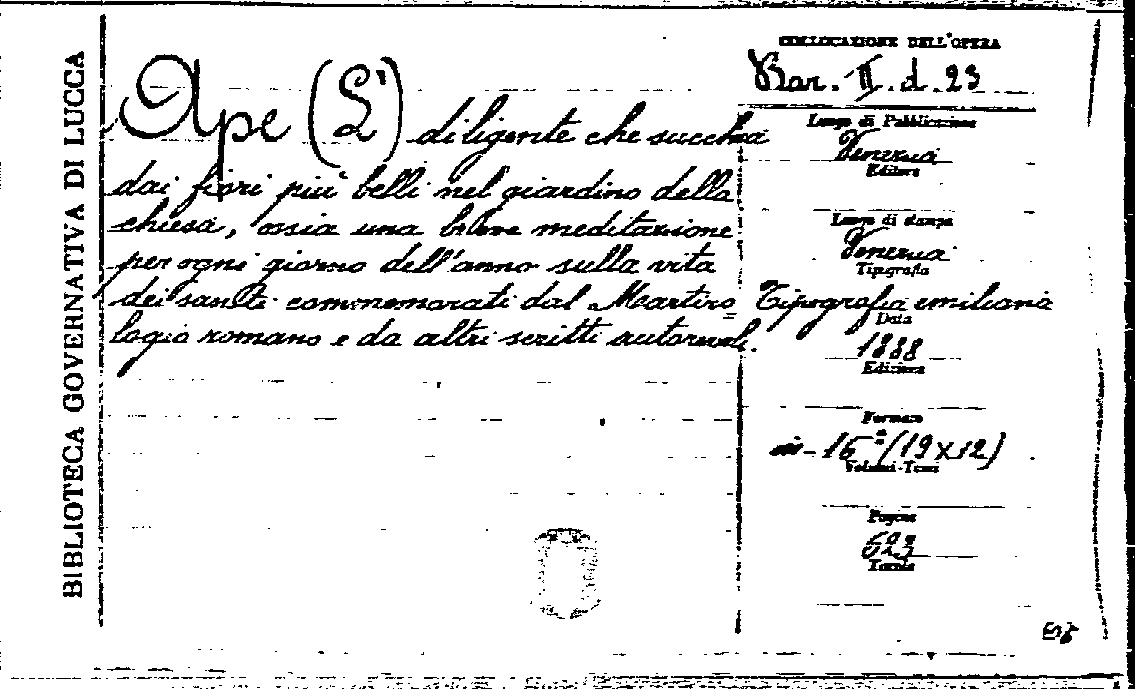 BIBLIOTECA GOVERNATIVA DI LUCCA
Ape (L') diligente che succhia
dai fiori più belli nel giardino della
chiesa, ossia una breve meditazione
per ogni giorno dell'anno sulla vita
dei santi commemorati dal Martiro=
logio romano e da altri scritti autorevoli.
COLLOCAZIONE DELL'OPERA
Bar. II. d. 23
Luogo di Pubblicazione
Venezia
Editore
Luogo di stampa
Venezia
Tipografia
Tipografia emiliana
Data
1888
Edizione
Formato
in-16° (19x12)
Volumi-Tomi
Pagine
623
Tavole